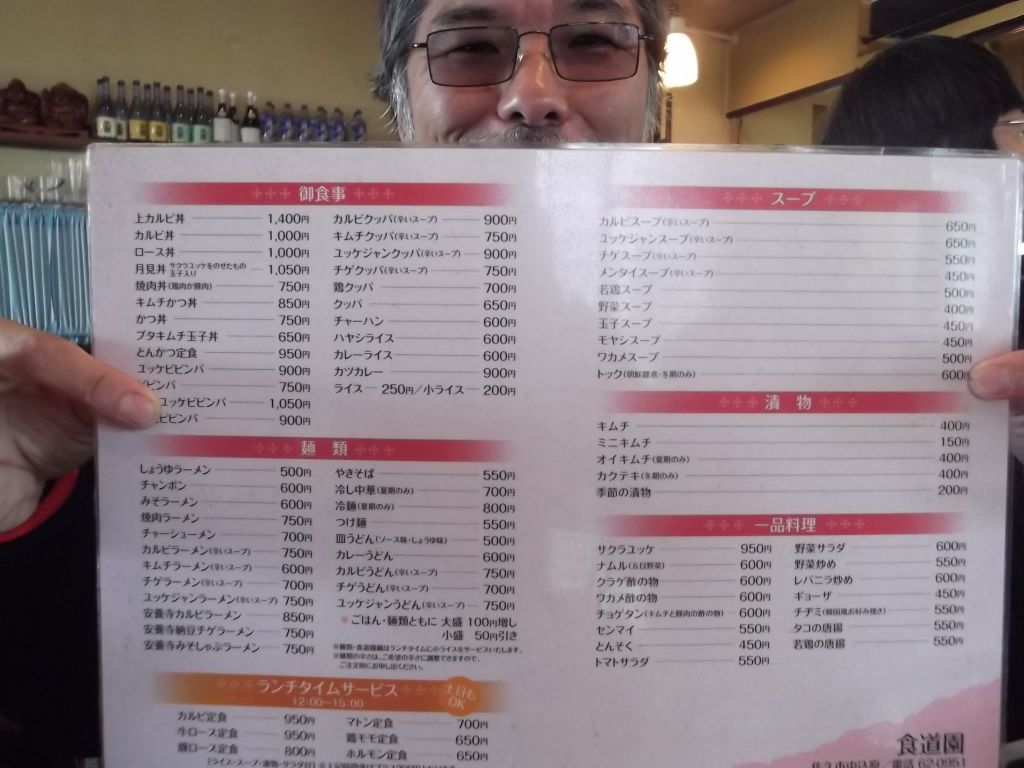 御食事
上カルビ丼 1,400円
カルビ丼 1,000円
ロース丼 1,000円
月見丼 サクラユッケをのせたもの 玉子入り 1,050円
焼肉丼(鶏肉か豚肉) 750円
キムチかつ丼 850円
かつ丼 750円
ブタキムチ玉子丼 650円
とんかつ定食 950円
ユッケビビンバ 900円
ビンバ 750円
ユッケビビンバ 1,050円
ビビンバ 900円
カルビクッパ(辛いスープ) 900円
キムチクッパ(辛いスープ) 750円
ユッケジャンクッパ(辛いスープ) 900円
チゲクッパ(辛いスープ) 750円
鶏クッパ 700円
クッパ 650円
チャーハン 600円
ハヤシライス 600円
カレーライス 600円
カツカレー 900円
ライス 250円/小ライス 200円
麺類
しょうゆラーメン 500円
チャンポン 600円
みそラーメン 600円
焼肉ラーメン 750円
チャーシューメン 700円
カルビラーメン(辛いスープ) 750円
キムチラーメン(辛いスープ) 600円
チゲラーメン(辛いスープ) 700円
ユッケジャンラーメン(辛いスープ) 750円
安養寺カルビラーメン 850円
安養寺納豆チゲラーメン 750円
安養寺みそしゃぶラーメン 750円
やきそば 550円
冷し中華(夏期のみ) 700円
冷麺(夏期のみ) 800円
つけ麺 550円
皿うどん(ソース味・しょうゆ味) 500円
カレーうどん 600円
カルビうどん(辛いスープ) 750円
チゲうどん(辛いスープ) 700円
ユッケジャンうどん(辛いスープ) 750円
ごはん・麺類ともに 大盛 100円増し
小盛 50円引き
※麺類・食道園麺はランチタイムに小ライスをサービスいたします。
※麺類の辛さは、ご希望の辛さに調整できますので、
ご注文時にお申し出ください。
ランチタイムサービス
12:00~15:00
土日もOK
カルビ定食 950円
牛ロース定食 950円
豚ロース定食 800円
マトン定食 700円
鶏モモ定食 650円
ホルモン定食 650円
スープ
カルビスープ(辛いスープ) 650円
ユッケジャンスープ(辛いスープ) 650円
チゲスープ(辛いスープ) 550円
メンタイスープ(辛いスープ) 450円
若鶏スープ 500円
野菜スープ 400円
玉子スープ 450円
モヤシスープ 450円
ワカメスープ 500円
トック(朝鮮雑煮・冬期のみ) 600円
漬物
キムチ 400円
ミニキムチ 150円
オイキムチ(夏期のみ) 400円
カクテキ(冬期のみ) 400円
季節の漬物 200円
一品料理
サクラユッケ 950円
ナムル(五目野菜) 600円
クラゲ酢の物 600円
ワカメ酢の物 600円
チョゲタン(キムチと豚肉の酢の物) 600円
センマイ 550円
とんそく 450円
トマトサラダ 550円
野菜サラダ 600円
野菜炒め 550円
レバニラ炒め 600円
ギョーザ 450円
チヂミ(韓国風お好み焼き) 550円
タコの唐揚 550円
若鶏の唐揚 550円
食道園
佐久市中込原/電話 62-0951